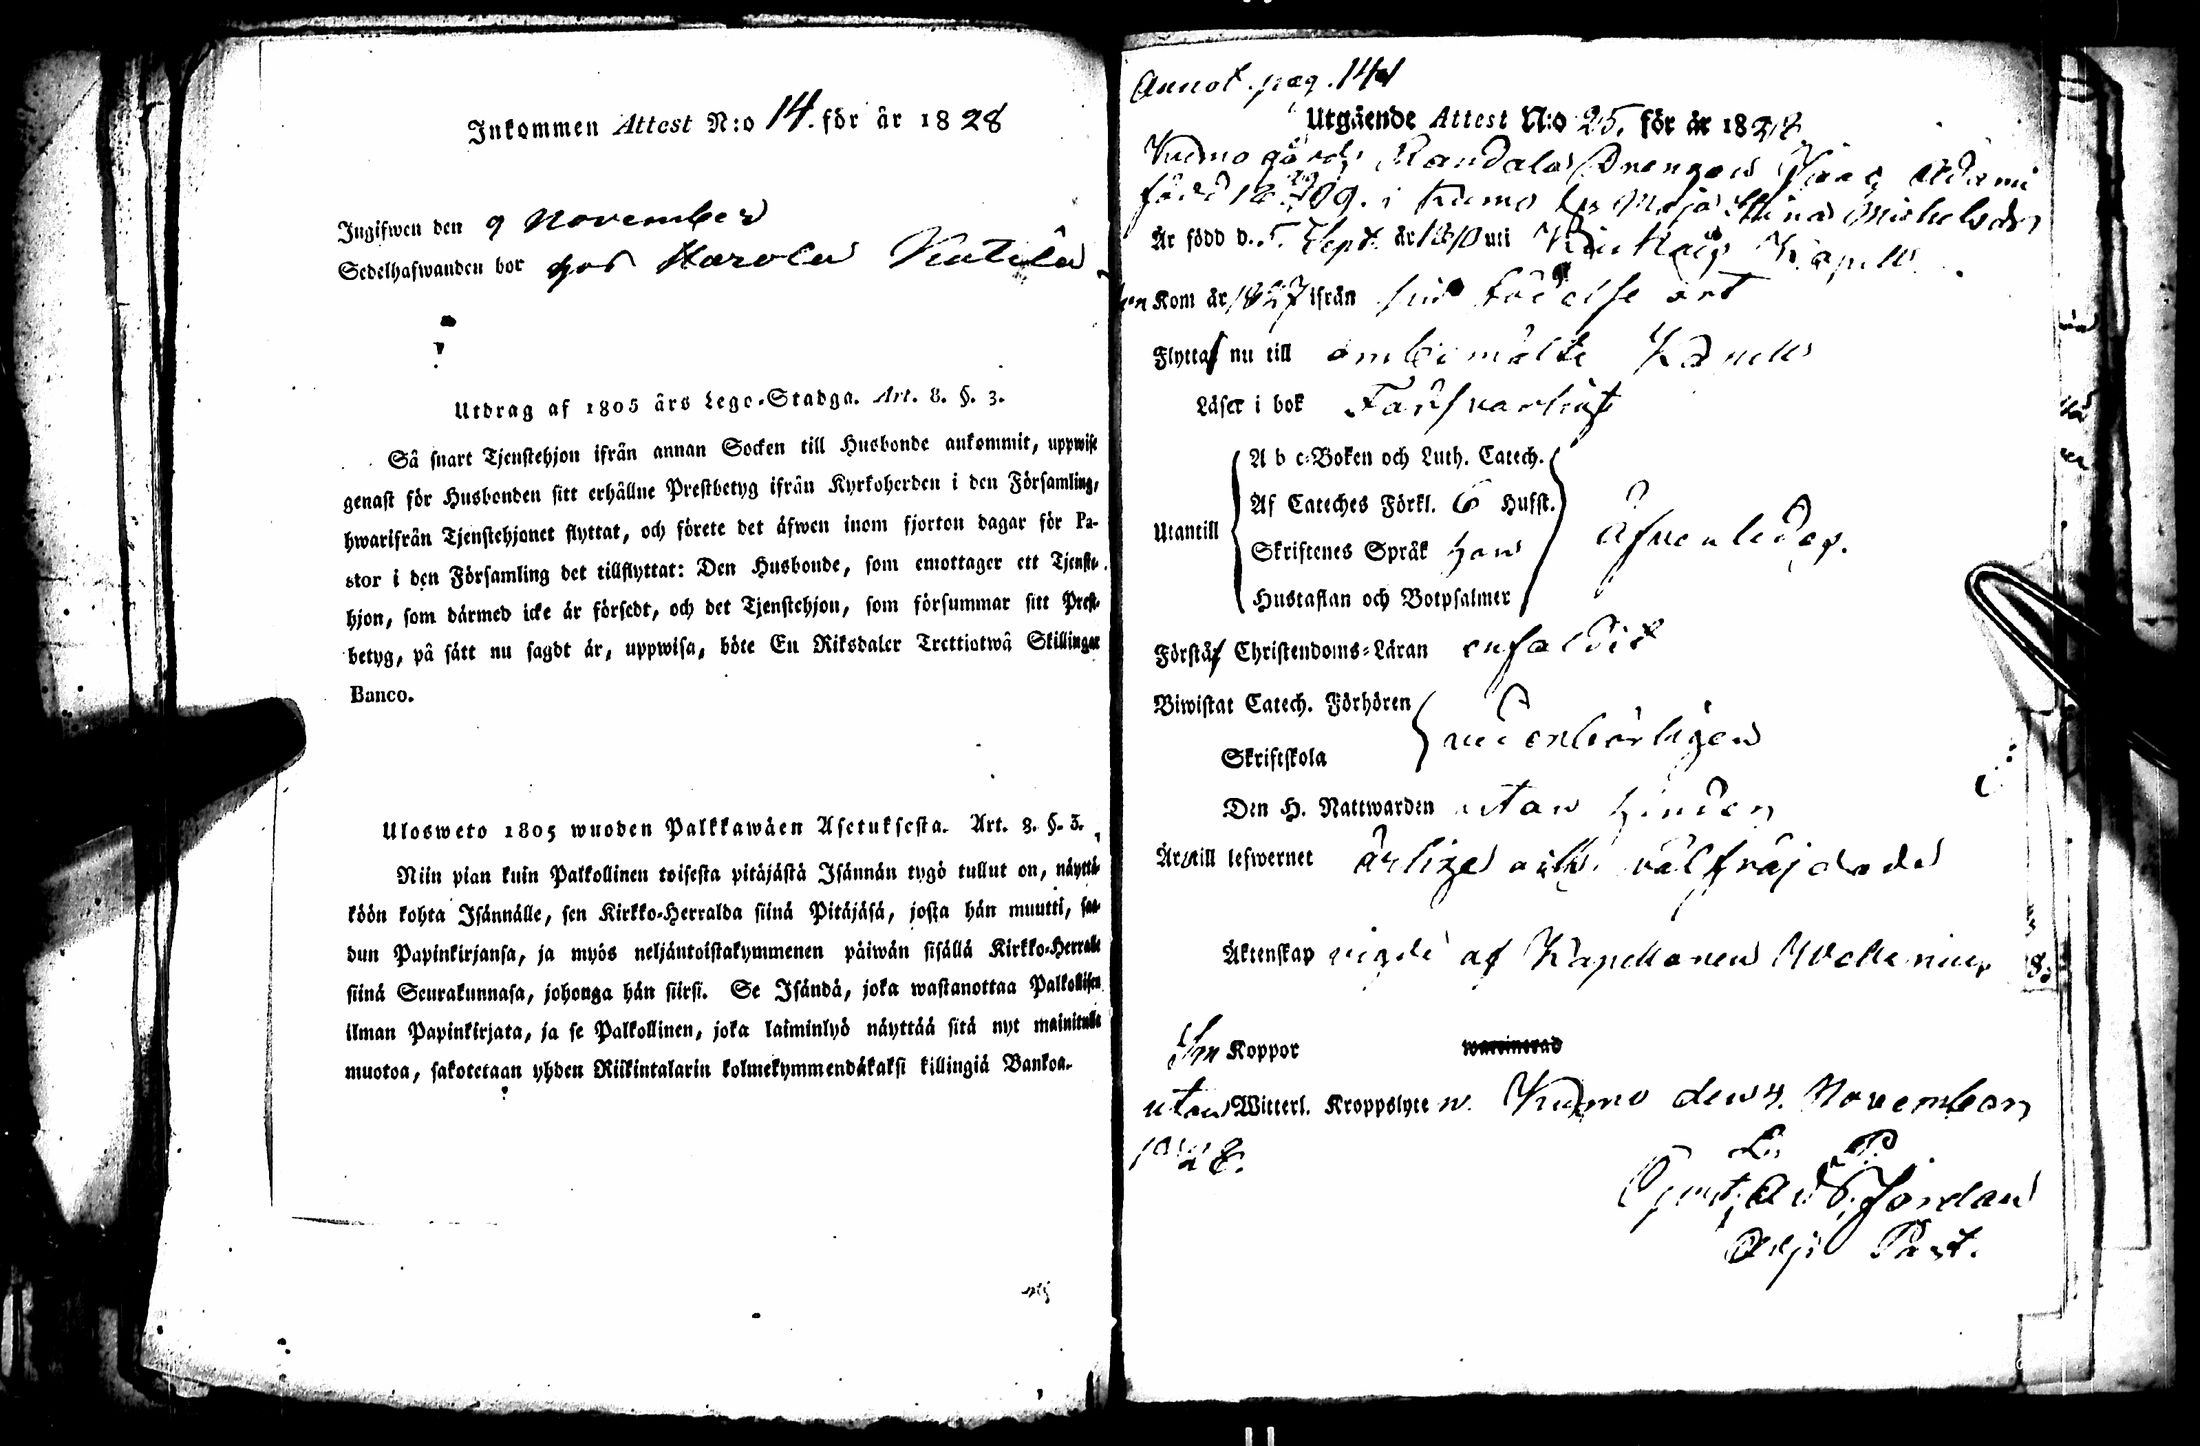 Inkommen Attest N:o 14. för år 1828
Ingifwen den 9 November
Sedelhafwanden bor hos Harola Kutila
Utdrag af 1805 års Lego-Stadga. Art. 8. §. 3.
Så snart Tjenstehjon ifrån annan Socken till Husbonde ankommit, uppwise
genast för Husbonden sitt erhållne Prestbetyg ifrån Kyrkoherden i den Församling,
hwarifrån Tjenstehjonet flyttat, och förete det äfwen inom fjorton dagar för Pa-
stor i den Församling det tillflyttat: Den Husbonde, som emottager ett Tjenste-
hjon, som därmed icke är försedt, och det Tjenstehjon, som försummar sitt Prest-
betyg, på sätt nu sagdt är, uppwisa, böte En Riksdaler Trettiotwå Skillingar
Banco.
Ulosweto 1805 wuoden Palkkawäen Asetuksesta. Art. 8. §. 3.
Niin pian kuin Palkollinen toisesta pitäjästä Isännän tygö tullut on, näyttä-
köön kohta Isännälle, sen Kirkko-Herralda siinä Pitäjäsä, josta hän muutti, saa-
dun Papinkirjansa, ja myös neljäntoistakymmenen päiwän sisällä Kirkko-Herralle
siinä Seurakunnasa, johonga hän siirsi. Se Isändä, joka wastanottaa Palkollisen
ilman Papinkirjata, ja se Palkollinen, joka laiminlyö näyttää sitä nyt mainitulla
muotoa, sakotetaan yhden Riikintalarin kolmekymmendäkaksi killingiä Bankoa.
Annot. pag. 141
Utgående Attest N:o 25. för år 1828
Kumo gårds Randala Drengen Isaac Adami
född 18 789. i Kumo Maja Stina Michelsdr
Är född d. 5. Sept. år 1810 uti Kapell
Kom år 1827 ifrån sin födelse ort
Flyttas nu till ombemälte Kapell
Läser i bok Försvarligt
Utantill
A b c-Boken och Luth. Catech.
Af Cateches Förkl. 6 Hufst.
Skriftenes Språk hon
Hustaflan och Botpsalmer
äfvenledes.
Förstår Christendoms-Läran enfaldigt
Biwistat Catech. Förhören
Skriftskola
vederbörligen
Den H. Nattwarden utan hinder
Äro till lefwernet ärlige och välfräjdade
Äktenskap vigde af Kapellanen
Koppor waccinerad
utan Witterl. Kroppslyten. Kumo den 4. November
1828.
L. P.
Gust. Ad. Fjordan
Adj. Past.